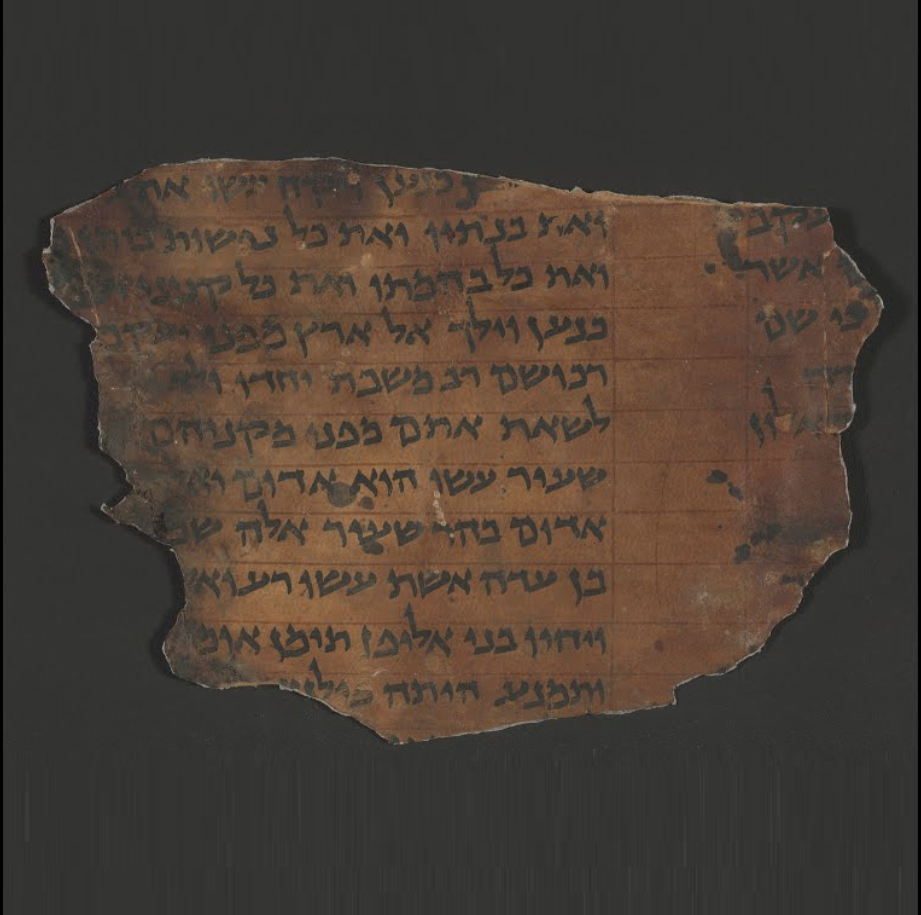 עקב
אשר
כי שם
לון
כנען ויקח עשו את
ואת בנתיו ואת כל נפשות ביתו
ואת כל בהמתו ואת כל קנינו
כנען וילך אל ארץ מפני יעקב
רכושם רב משבת יחדו ולא
לשאת אתם מפני מקניהם
שעיר עשו הוא אדום ואל
אדום בהר שעיר אלה שמ
בן עדה אשת עשו רעוא
ויהיו בני אליפז תימן אומ
ותמנע היתה פילגש